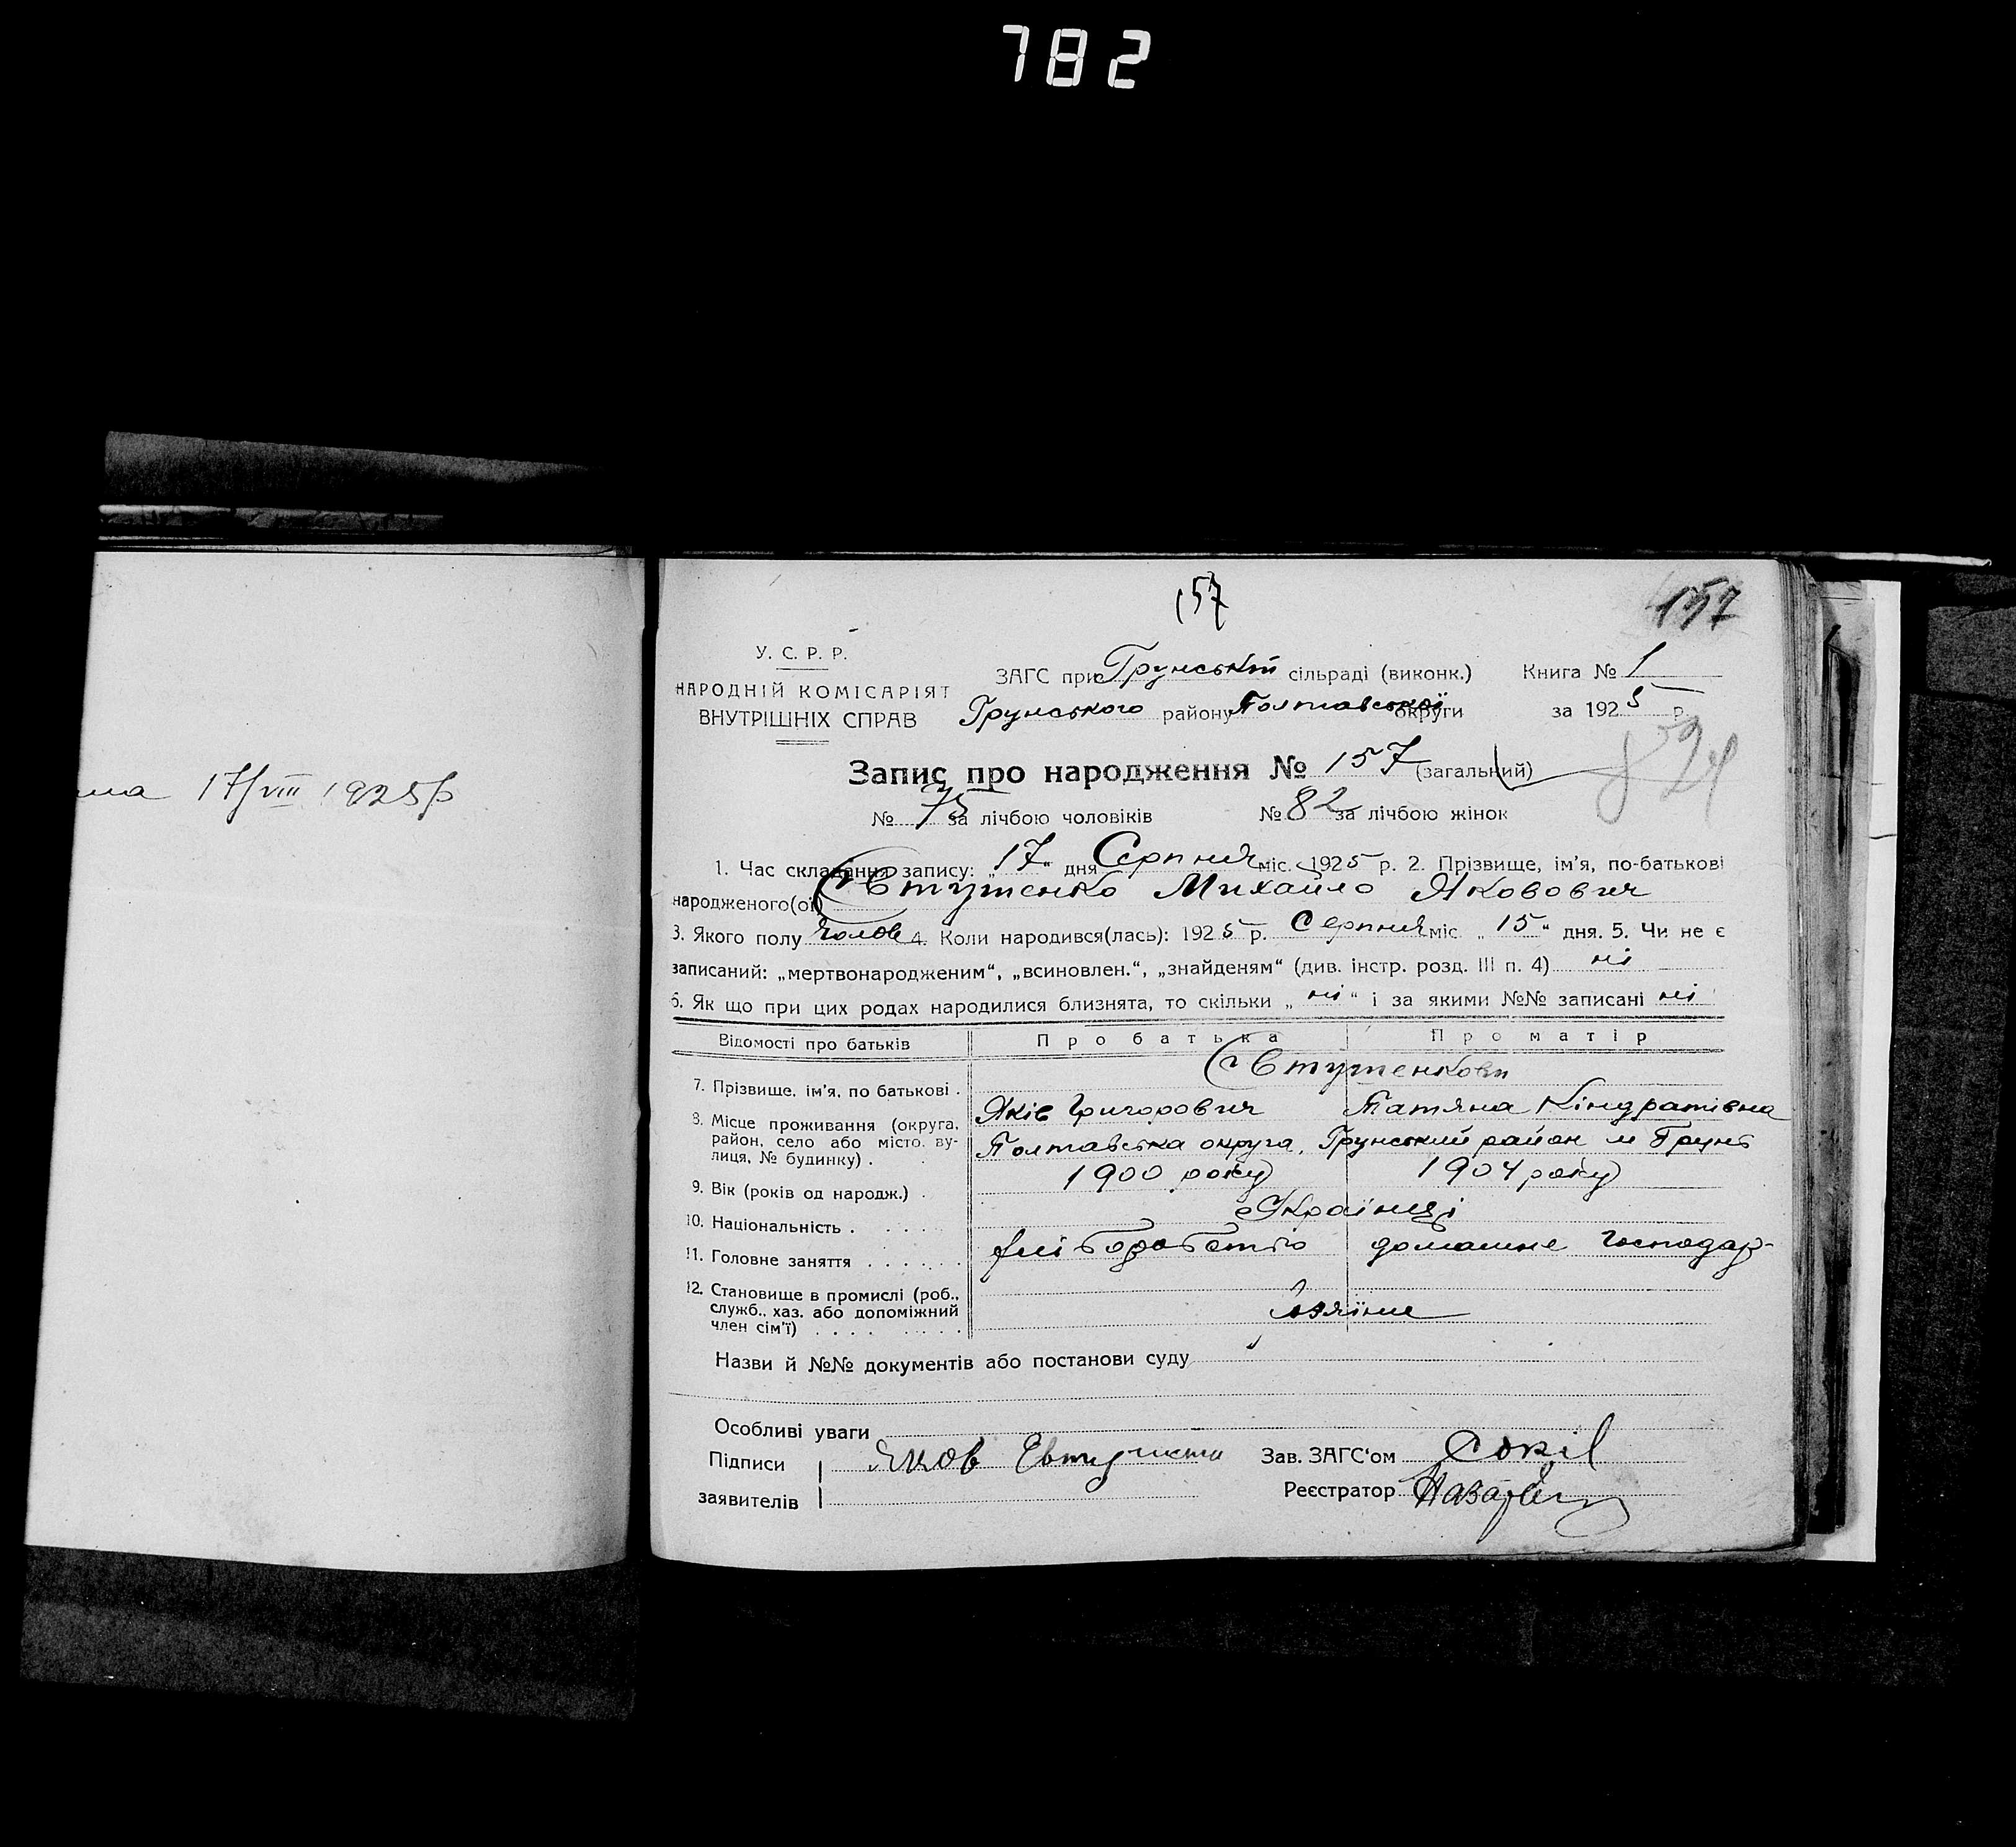 782
17/VIII 1925р
157
157
У. С. Р. Р.
НАРОДНІЙ КОМІСАРІЯТ
ВНУТРІШНІХ СПРАВ
ЗАГС при Грунській сільраді (виконк.)
Грунського району Полтавської округи
Книга № 1
за 1925 р.
Запис про народження № 157 (загальний)
№ 75 за лічбою чоловіків № 82 за лічбою жінок
1. Час складання запису: „17“ дня Серпня міс. 1925 р. 2. Прізвище, ім'я, по-батькові
народженого(ої) Євтушенко Михайло Якович
3. Якого полу чолов 4. Коли народився(лась): 1925 р. Серпня міс „15“ дня. 5. Чи не є
записаний: „мертвонародженим“, „всиновлен.“, „знайденям“ (див. інстр. розд. III п. 4) ні
6. Як що при цих родах народилися близнята, то скільки „ні“ і за якими №№ записані ні
Відомості про батьків Про батька Про матір
Євтушенкови
7. Прізвище, ім'я, по батькові . Яків Григорович Татяна Кіндратівна
8. Місце проживання (округа, район, село або місто, вулиця, № будинку) . Полтавська округа, Грунський район м Грунь
9. Вік (років од народж.) . 1900 року 1904 року
10. Національність . Українці
11. Головне заняття . . . . . . хліборобство домашне господар-
12. Становище в промислі (роб.,
служб., хаз. або допоміжний
член сім'ї) . . . . хазяїни
Назви й №№ документів або постанови суду
Особливі уваги
Підписи
заявителів
Яков
Зав. ЗАГС'ом Сокіл
Реєстратор